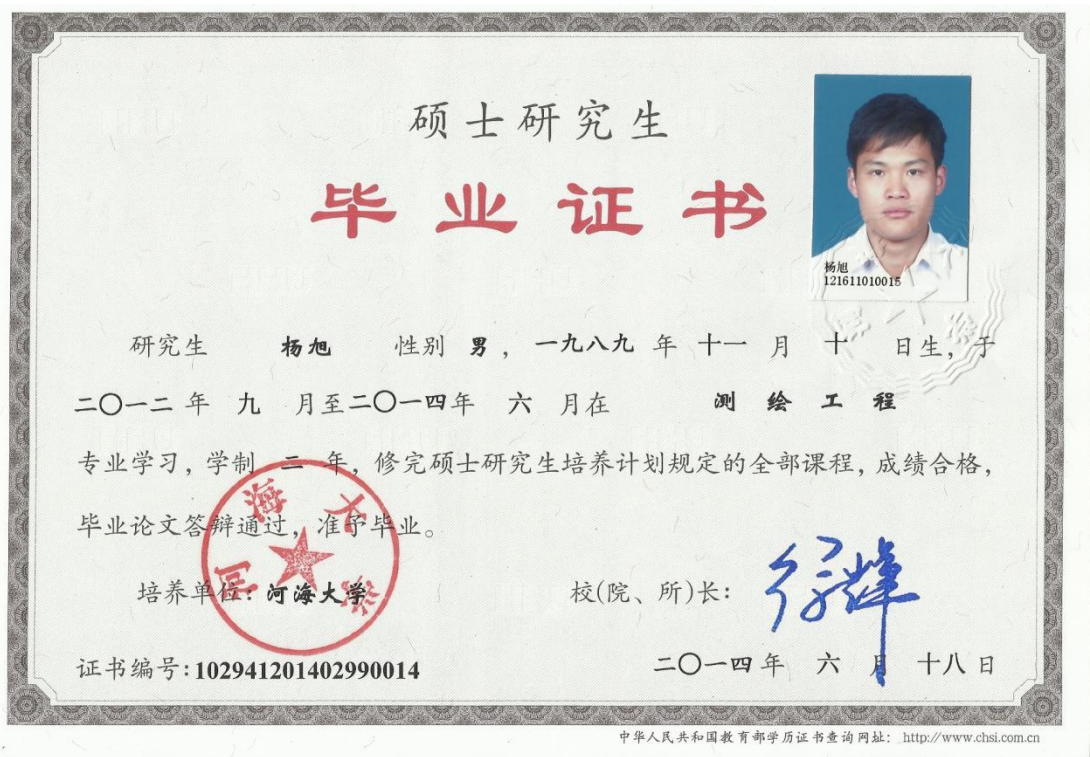 硕士研究生
毕业证书
杨旭
121611010015
研究生 杨旭 性别 男，一九八九 年 十一 月 十 日生，于
二〇一二 年 九 月至二〇一四年 六 月在 测绘工程
专业学习，学制 二 年，修完硕士研究生培养计划规定的全部课程，成绩合格，
毕业论文答辩通过，准予毕业。
河海大学
培养单位：河海大学 校(院、所)长：
证书编号:102941201402990014 二〇一四 年 六 月 十八 日
中华人民共和国教育部学历证书查询网址： http://www.chsi.com.cn